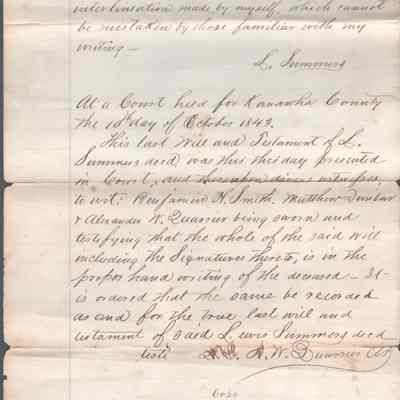 interlineation made by myself, which cannot
be mistaken by those familiar with my
writing –
L. Summers
At a Court held for Kanawha County
the 10th day of October 1843.
This last Will and Testament of L.
Summers decd, was this day presented
in Court, and thereupon divers witnesses,
to wit: Benjamin H. Smith, Matthew Dunbar
& Alexander W. Quarrier being sworn and
testifying that the whole of the said will
including the Signatures thereto, is in the
proper hand writing of the deceased – It
is ordered that the same be recorded
as and for the true last will and
testament of said Lewis Summers decd
teste A. W. Quarrier Clk
Copy